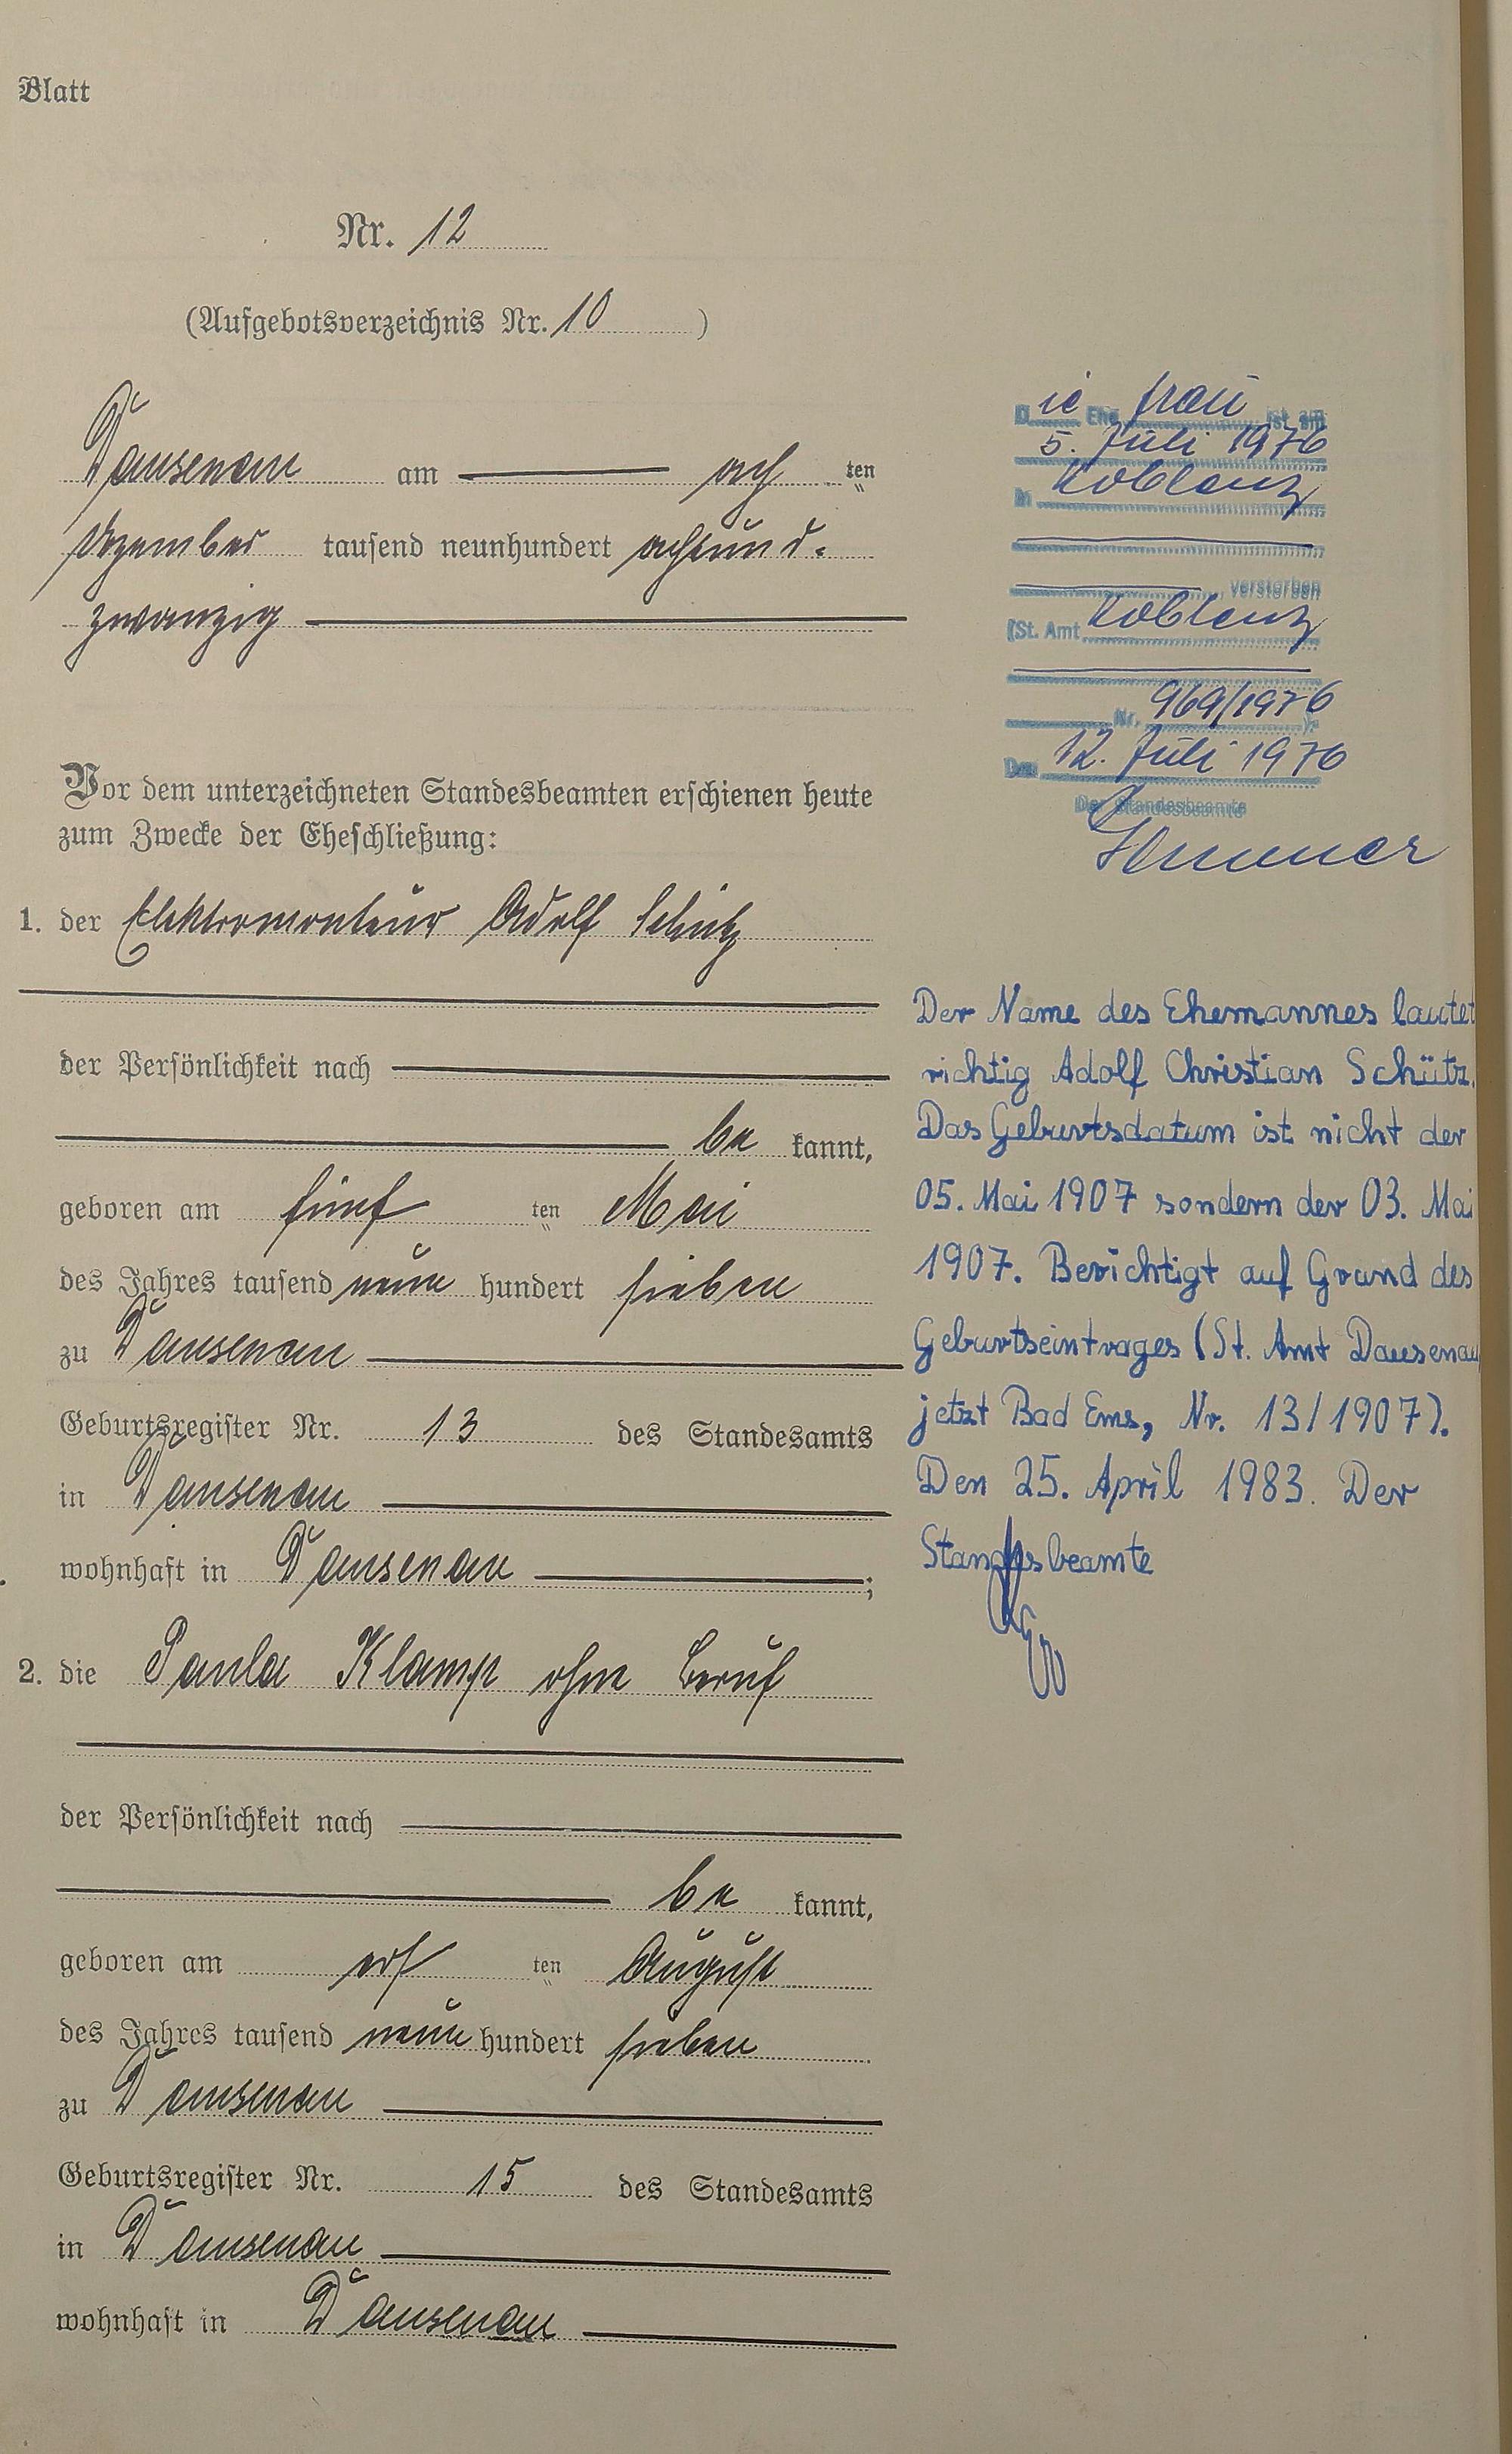 Blatt
Nr. 12
(Aufgebotsverzeichnis Nr. 10 )
Dausenau am ach ten
Dezember tausend neunhundert achtund-
zwanzig
Vor dem unterzeichneten Standesbeamten erschienen heute
zum Zwecke der Eheschließung:
1. der Elektromonteur Adolf Schütz
der Persönlichkeit nach
be kannt,
geboren am fünf ten Mai
des Jahres tausend neun hundert sieben
zu Dausenau
Geburtsregister Nr. 13 des Standesamts
in Dausenau
wohnhaft in Dausenau ;
2. die Paula Klamp ohne Beruf
der Persönlichkeit nach
be kannt,
geboren am ers ten August
des Jahres tausend neun hundert sieben
zu Dausenau
Geburtsregister Nr. 15 des Standesamts
in Dausenau
wohnhaft in Dausenau
Die Ehefrau ist am
5. Juli 1976
in Koblenz
verstorben
(St. Amt Koblenz
Nr. 969/1976).
Den 12. Juli 1976
Der Standesbeamte
Der Name des Ehemannes lautet
richtig Adolf Christian Schütz.
Das Geburtsdatum ist nicht der
05. Mai 1907 sondern der 03. Mai
1907. Berichtigt auf Grund des
Geburtseintrages (St. Amt Dausenau
jetzt Bad Ems, Nr. 13/1907).
Den 25. April 1983. Der
Standesbeamte